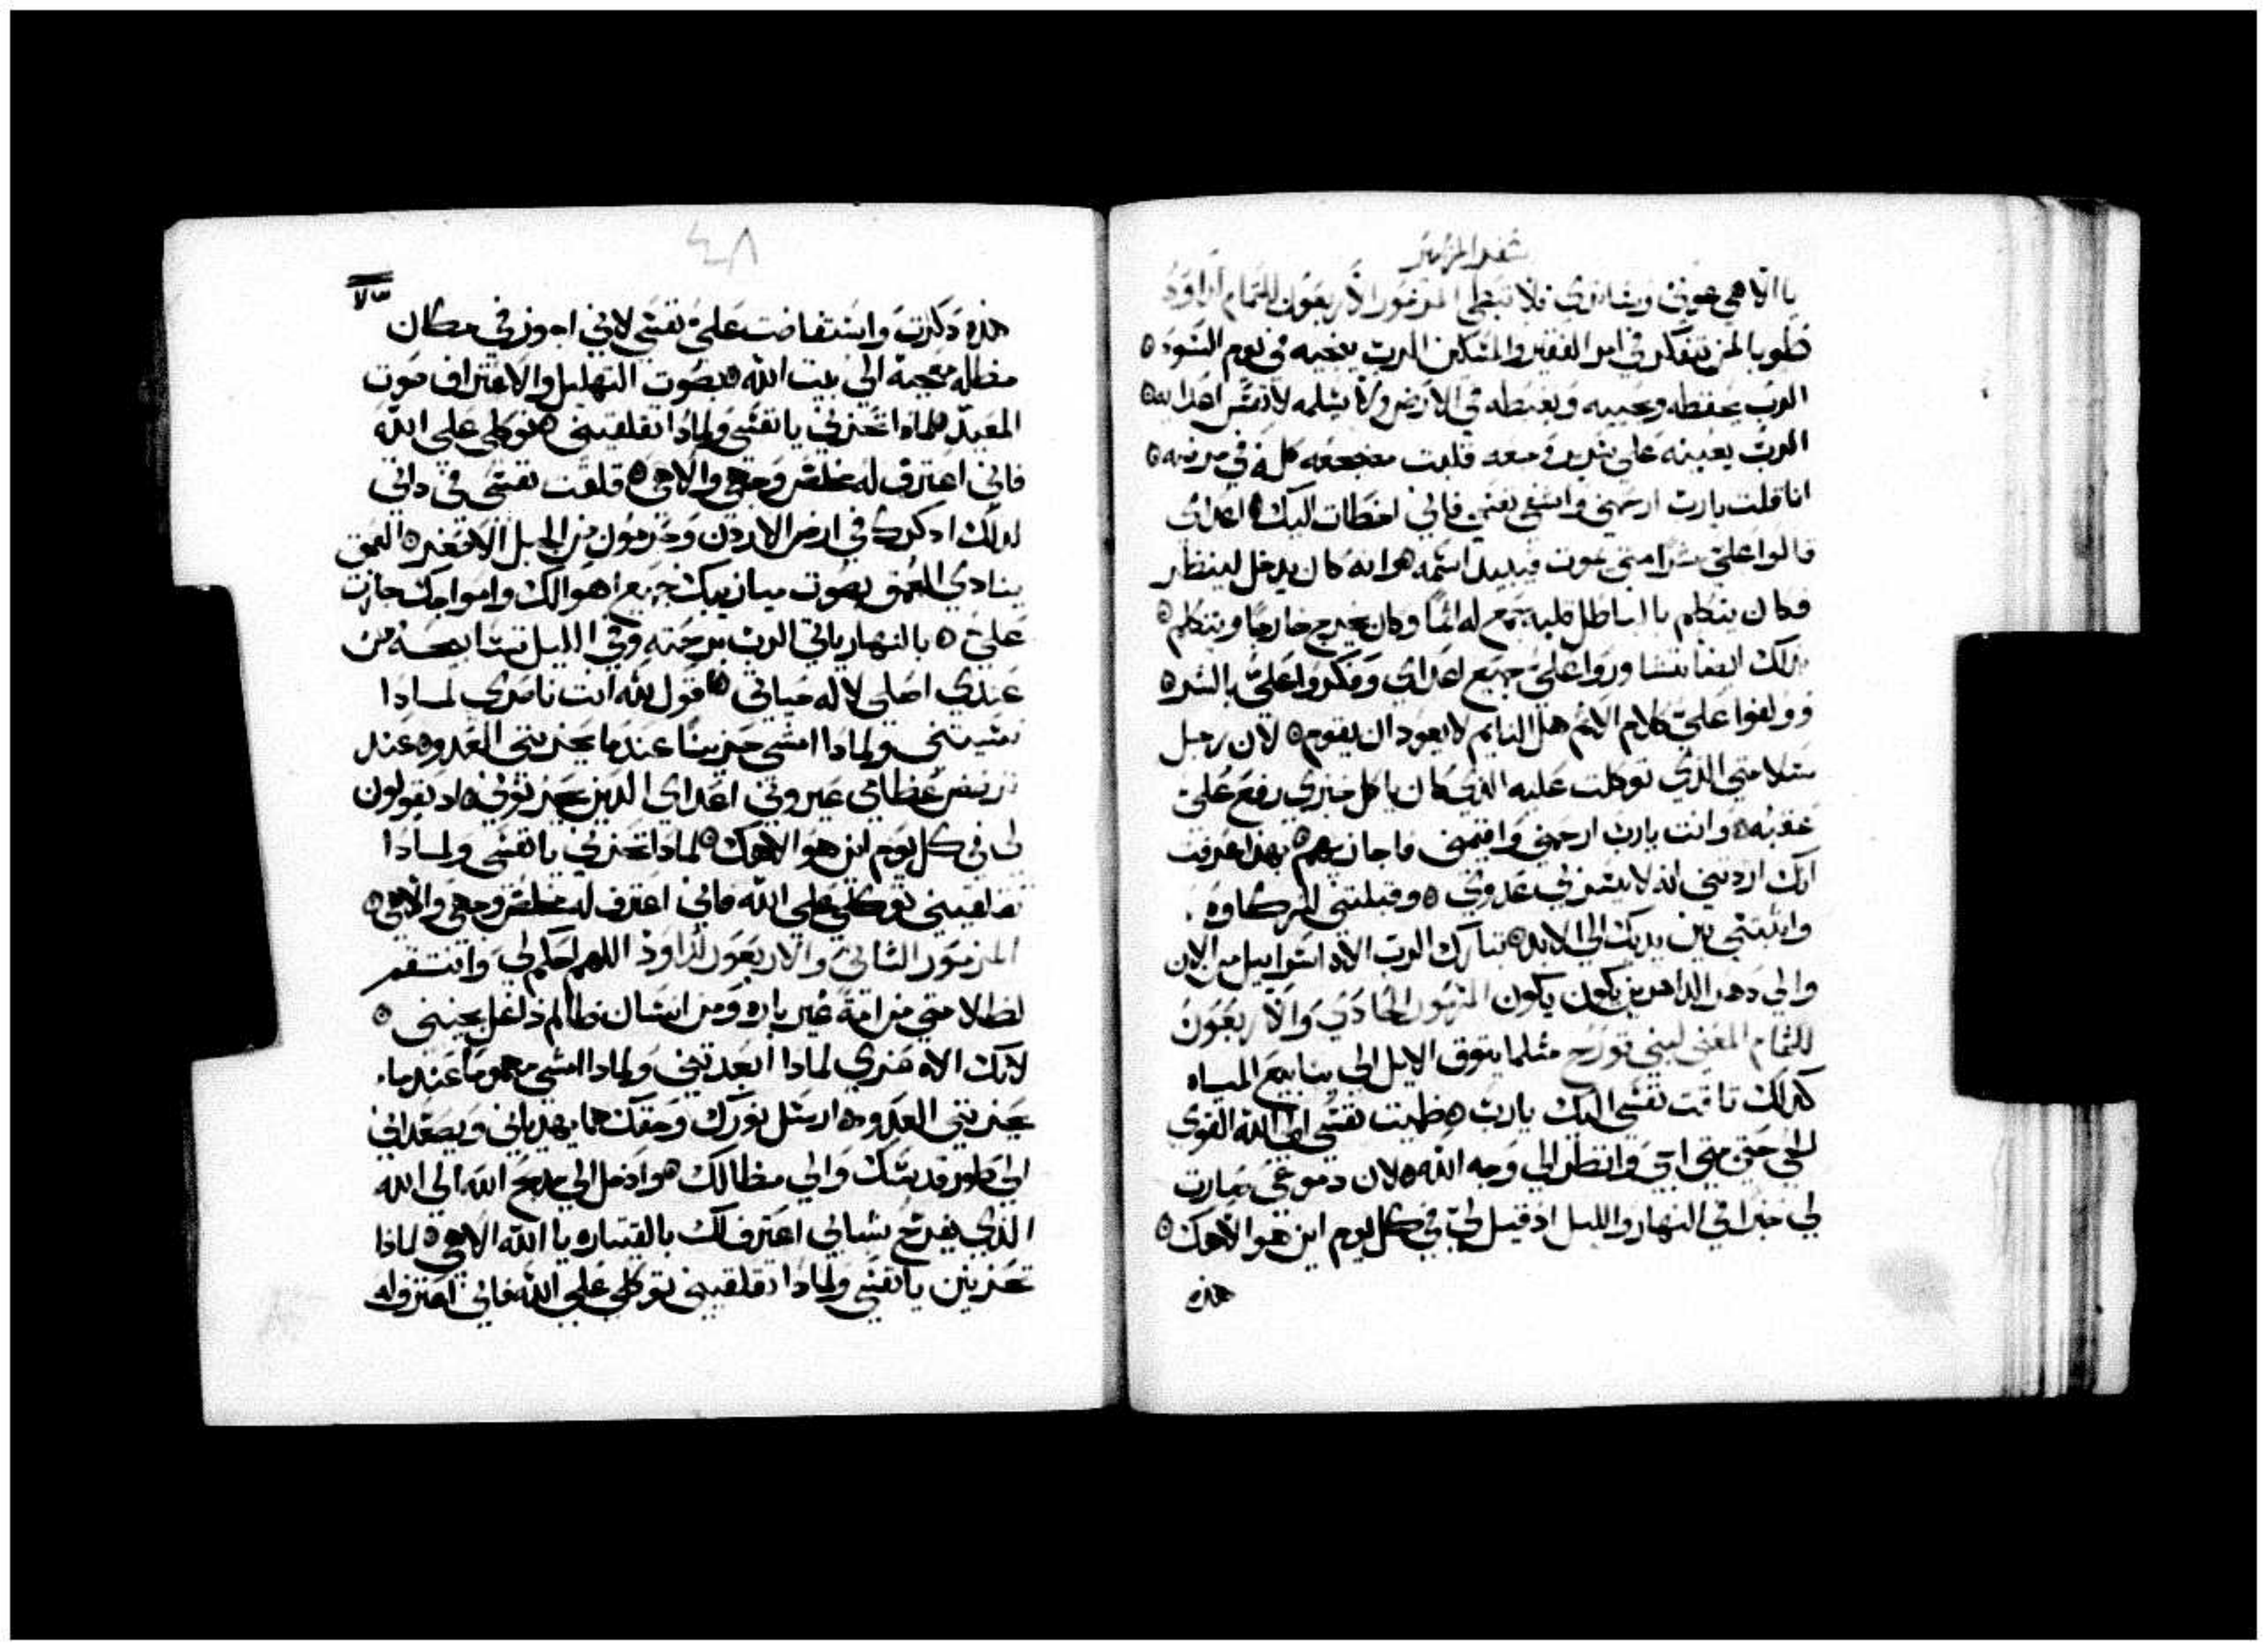 يا الاهي عوني وناصري فلا تبطي المزمور الاربعون للتمام لداوود
طوبا لمن يتفكر في امر الفقير والمسكين الرب ينجيه في يوم السوء
الرب يحفظه ويحييه ويغبطه في الارض ولا يسلمه لانفس اعدايه
الرب يعينه على سرير وجعه قلبت مضجعه كله في مرضه
انا قلت يارب ارحمني واشفي نفسي فاني اخطات اليك اعداي
قالوا علي شرا متى يموت فيبيد اسمه هوا انه كان يدخل لينظر
فكان يتكلم باالباطل قلبه جمع له اثما وكان يخرج خارجا ويتكلم
كذلك ايضا تشاوروا علي جميع اعداي وفكروا علي بالشر
وولفوا علي كلام الاثم هل النايم لا يعود ان يقوم لان رجل
سلامتي الذي توكلت عليه الذي كان ياكل خبزي رفع علي
عقبه وانت يارب ارحمني واقيمني فاجازيهم بهذا عرفت
انك اردتني انه لا يشمت بي عدوي وقبلتني
واثبتني بين يديك الى الابد تبارك الرب الاه اسراييل من الان
والي دهر الداهرين يكون يكون المزمور الحادي والاربعون
للتمام المغني لبني قورح مثلما يتوق الايل الي ينابيع المياه
كذلك تاقت نفسي اليك يارب ظميت نفسي الى الله القوي
الحي حتي متي اتي وانظر الي وجه الله لان دموعي صارت
لي خبزا في النهار والليل اذ قيل لي في كل يوم اين هو الاهك
هذه
٤٨
هذه دكرت واستفاضت علي نفسي لاني اجوز في مكان
مظله عجيبة الى بيت الله بصوت التهليل والاعتراف صوت
المعيد لماذا تحزني يا نفسي ولماذا تقلقيني توكلي علي الله
فاني اعترف له خلاص وجهي والاهي قلقت نفسي في ذاتي
لذلك اذكرك في ارض الاردن وحرمون من الجبل الاصغير العمق
ينادي العمق بصوت ميازيبك جميع اهوالك وامواجك جازت
علي بالنهار ياتي الرب برحمته وفي الليل تسابيحه من
عندي اصلي لاله حياتي اقول لله انت ناصري لماذا
نسيتني ولماذا امشي حزينا عندما يحزنني العدو عند
ترضض عظامي عيروني اعداي الذين يحزنوني اذ يقولون
لي في كل يوم اين هو الاهك لماذا تحزني يا نفسي ولماذا
تقلقيني توكلي علي الله فاني اعترف له خلاص وجهي والاهي
المزمور الثاني والاربعون لداود اللهم احكم لي وانتقم
لظلامتي من امة غير باره ومن انسان ظالم دغل نجيني
لانك الاه عزي لماذا ابعدتني ولماذا امشي مهموما عندما
يحزنني العدو ارسل نورك وحقك هما يهدياني ويصعداني
الي طور قدسك والي مظالك هوا ادخل الي مدبح الله الي الله
الذي يفرح شبابي اعترف لك بالقيتاره يا الله الاهي لماذا
تحزنين يا نفسي ولماذا تقلقيني توكلي علي الله فاني اعترف له